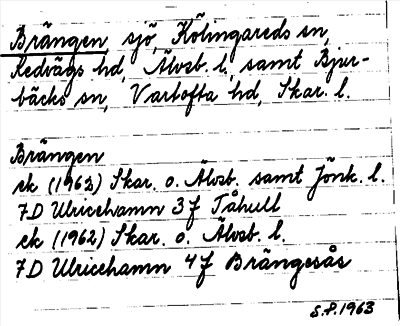 Brängen, sjö, Kölingareds sn,
Redvägs hd, Älvsb. l., samt Bjur-
bäcks sn, Vartofta hd, Skar. l.
Brängen
ek (1962) Skar. o. Älvsb. samt Jönk. l.
7D Ulricehamn 3f Tåhult
ek (1962) Skar. o. Älvsb. l.
7D Ulricehamn 4f Brängesås
S.P. 1963